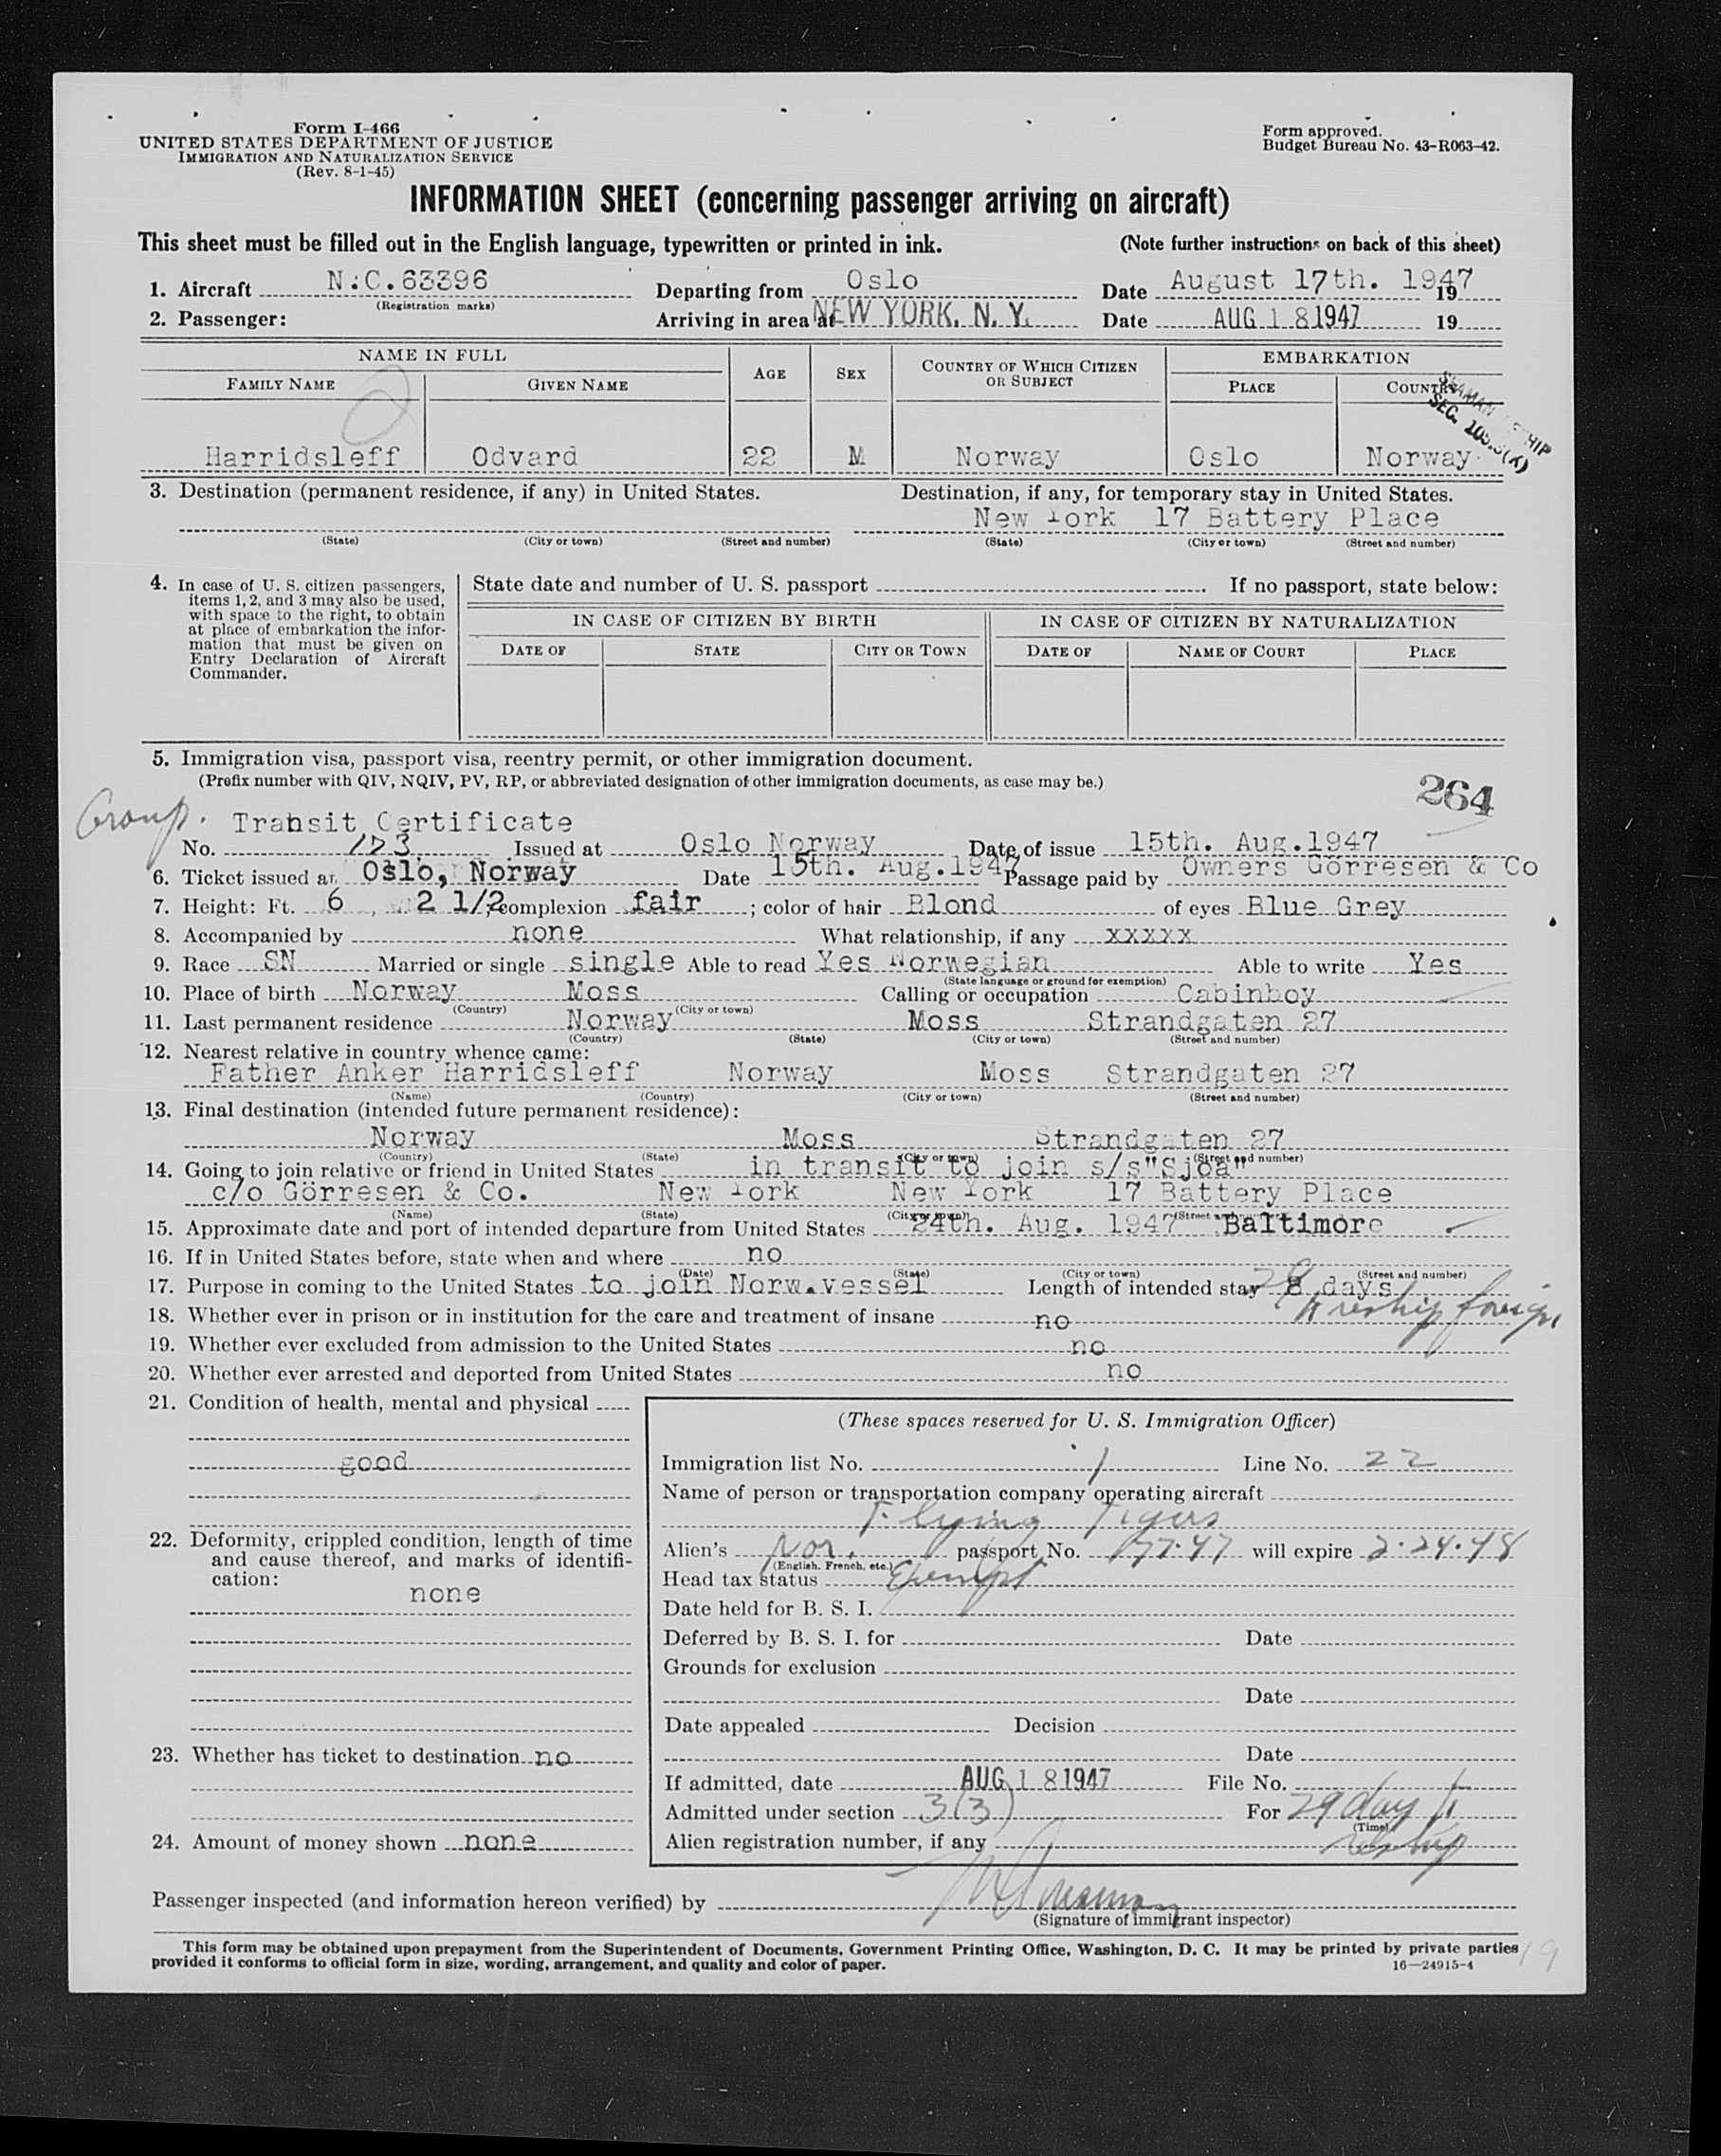 Form I-466
UNITED STATES DEPARTMENT OF JUSTICE
IMMIGRATION AND NATURALIZATION SERVICE
(Rev. 8-1-45)
Form approved.
Budget Bureau No. 43-R063-42.
INFORMATION SHEET (concerning passenger arriving on aircraft)
This sheet must be filled out in the English language, typewritten or printed in ink. (Note further instructions on back of this sheet)
1. Aircraft N.C.63396 Departing from Oslo Date August 17th. 1947 19
(Registration marks)
2. Passenger: Arriving in area at NEW YORK, N. Y. Date AUG 18 1947 19
NAME IN FULL AGE SEX COUNTRY OF WHICH CITIZEN OR SUBJECT EMBARKATION
FAMILY NAME GIVEN NAME PLACE COUNTRY
SEC.
Harridsleff Odvard 22 M Norway Oslo Norway
3. Destination (permanent residence, if any) in United States. Destination, if any, for temporary stay in United States.
New York 17 Battery Place
(State) (City or town) (Street and number) (State) (City or town) (Street and number)
4. In case of U. S. citizen passengers, items 1, 2, and 3 may also be used, with space to the right, to obtain at place of embarkation the information that must be given on Entry Declaration of Aircraft Commander.
State date and number of U. S. passport If no passport, state below:
IN CASE OF CITIZEN BY BIRTH IN CASE OF CITIZEN BY NATURALIZATION
DATE OF STATE CITY OR TOWN DATE OF NAME OF COURT PLACE
5. Immigration visa, passport visa, reentry permit, or other immigration document.
(Prefix number with QIV, NQIV, PV, RP, or abbreviated designation of other immigration documents, as case may be.)
264
Group. Transit Certificate
No. Issued at Oslo Norway Date of issue 15th. Aug.1947
6. Ticket issued at Oslo, Norway Date 15th. Aug.1947 Passage paid by Owners Görresen & Co
7. Height: Ft. 6, 2 1/2; complexion fair; color of hair Blond of eyes Blue Grey
8. Accompanied by none What relationship, if any xxxxx
9. Race SN Married or single single Able to read Yes Norwegian Able to write Yes
(State language or ground for exemption)
10. Place of birth Norway Moss Calling or occupation Cabinboy
(Country) (City or town)
11. Last permanent residence Norway Moss Strandgaten 27
(Country) (State) (City or town) (Street and number)
12. Nearest relative in country whence came:
Father Anker Harridsleff Norway Moss Strandgaten 27
(Name) (Country) (City or town) (Street and number)
13. Final destination (intended future permanent residence):
Norway Moss Strandgaten 27
(Country) (State) (City or town) (Street and number)
14. Going to join relative or friend in United States in transit to join s/s"Sjoa"
c/o Görresen & Co. New York New York 17 Battery Place
(Name) (State) (City or town) (Street and number)
15. Approximate date and port of intended departure from United States 24th. Aug. 1947 Baltimore
16. If in United States before, state when and where no
(Date) (State) (City or town) (Street and number)
17. Purpose in coming to the United States to join Norw.vessel Length of intended stay 29 8 days
to reship foreign
18. Whether ever in prison or in institution for the care and treatment of insane no
19. Whether ever excluded from admission to the United States no
20. Whether ever arrested and deported from United States no
21. Condition of health, mental and physical
good
22. Deformity, crippled condition, length of time and cause thereof, and marks of identification:
none
23. Whether has ticket to destination no
24. Amount of money shown none
(These spaces reserved for U. S. Immigration Officer)
Immigration list No. 1 Line No. 22
Name of person or transportation company operating aircraft
Flying Tigers
Alien's Nor. passport No. 177.47 will expire 2.24.48
(English, French, etc.)
Head tax status Exempt
Date held for B. S. I.
Deferred by B. S. I. for Date
Grounds for exclusion
Date
Date appealed Decision
Date
If admitted, date AUG 18 1947 File No.
Admitted under section 3(3) For 29 day
(Time)
Alien registration number, if any reship
Passenger inspected (and information hereon verified) by
(Signature of immigrant inspector)
This form may be obtained upon prepayment from the Superintendent of Documents, Government Printing Office, Washington, D. C. It may be printed by private parties
provided it conforms to official form in size, wording, arrangement, and quality and color of paper. 16—24915-4
19